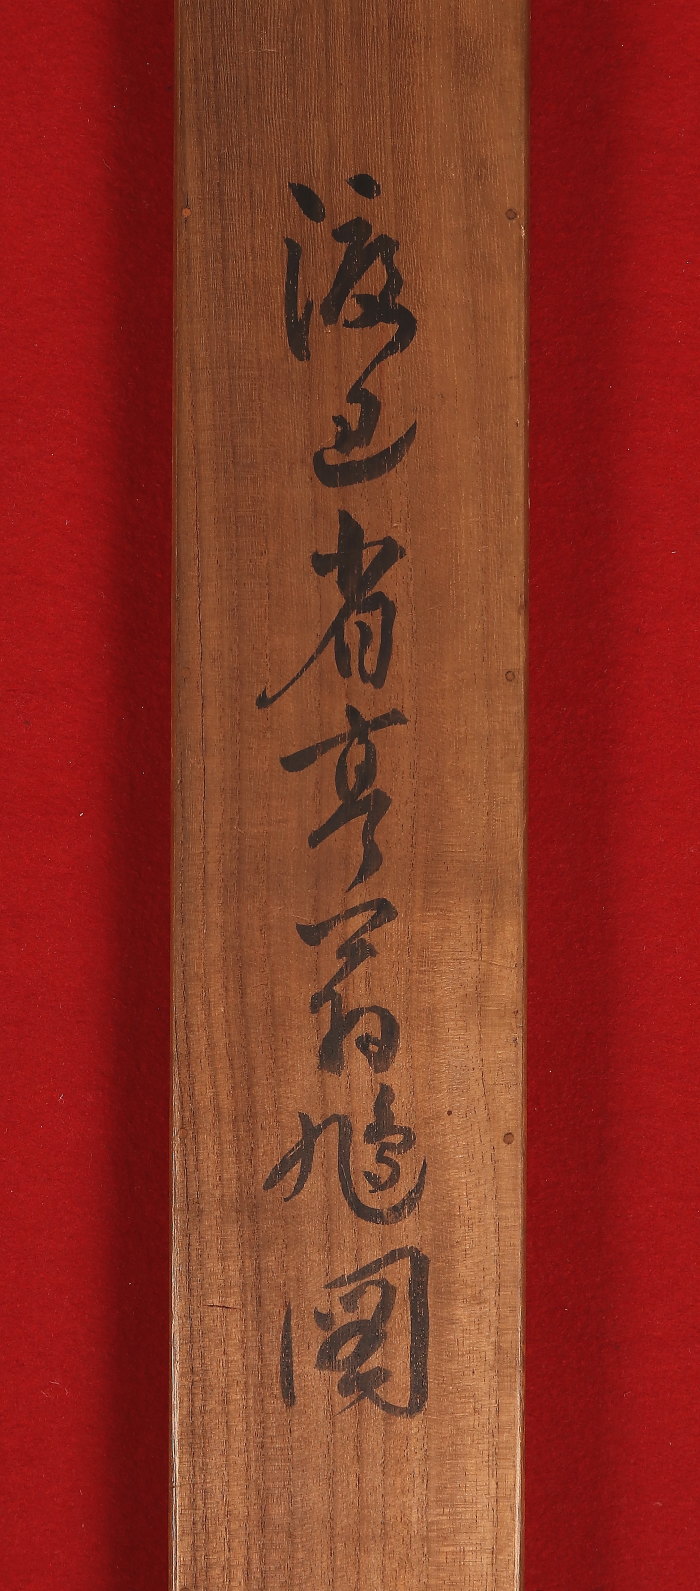 渡辺省亭翁鳩図